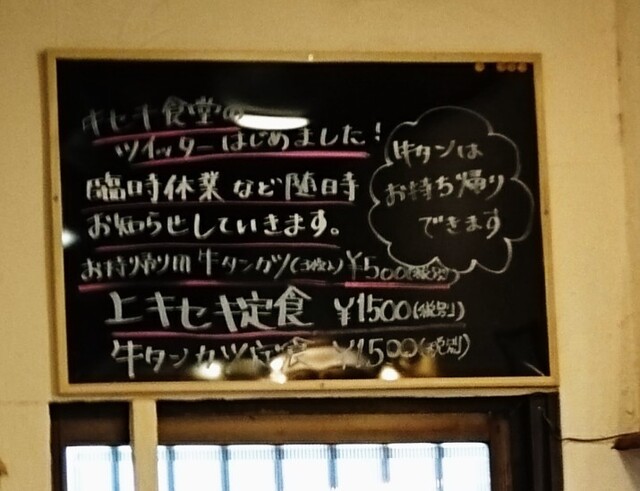 キセキ食堂の
ツイッターはじめました!
臨時休業など随時
お知らせしていきます。
牛タンは
お持ち帰り
できます
お持ち帰り用 牛タンカツ(3枚入) ¥500(税別)
上キセキ定食 ¥1500(税別)
牛タンカツ定食 ¥1500(税別)